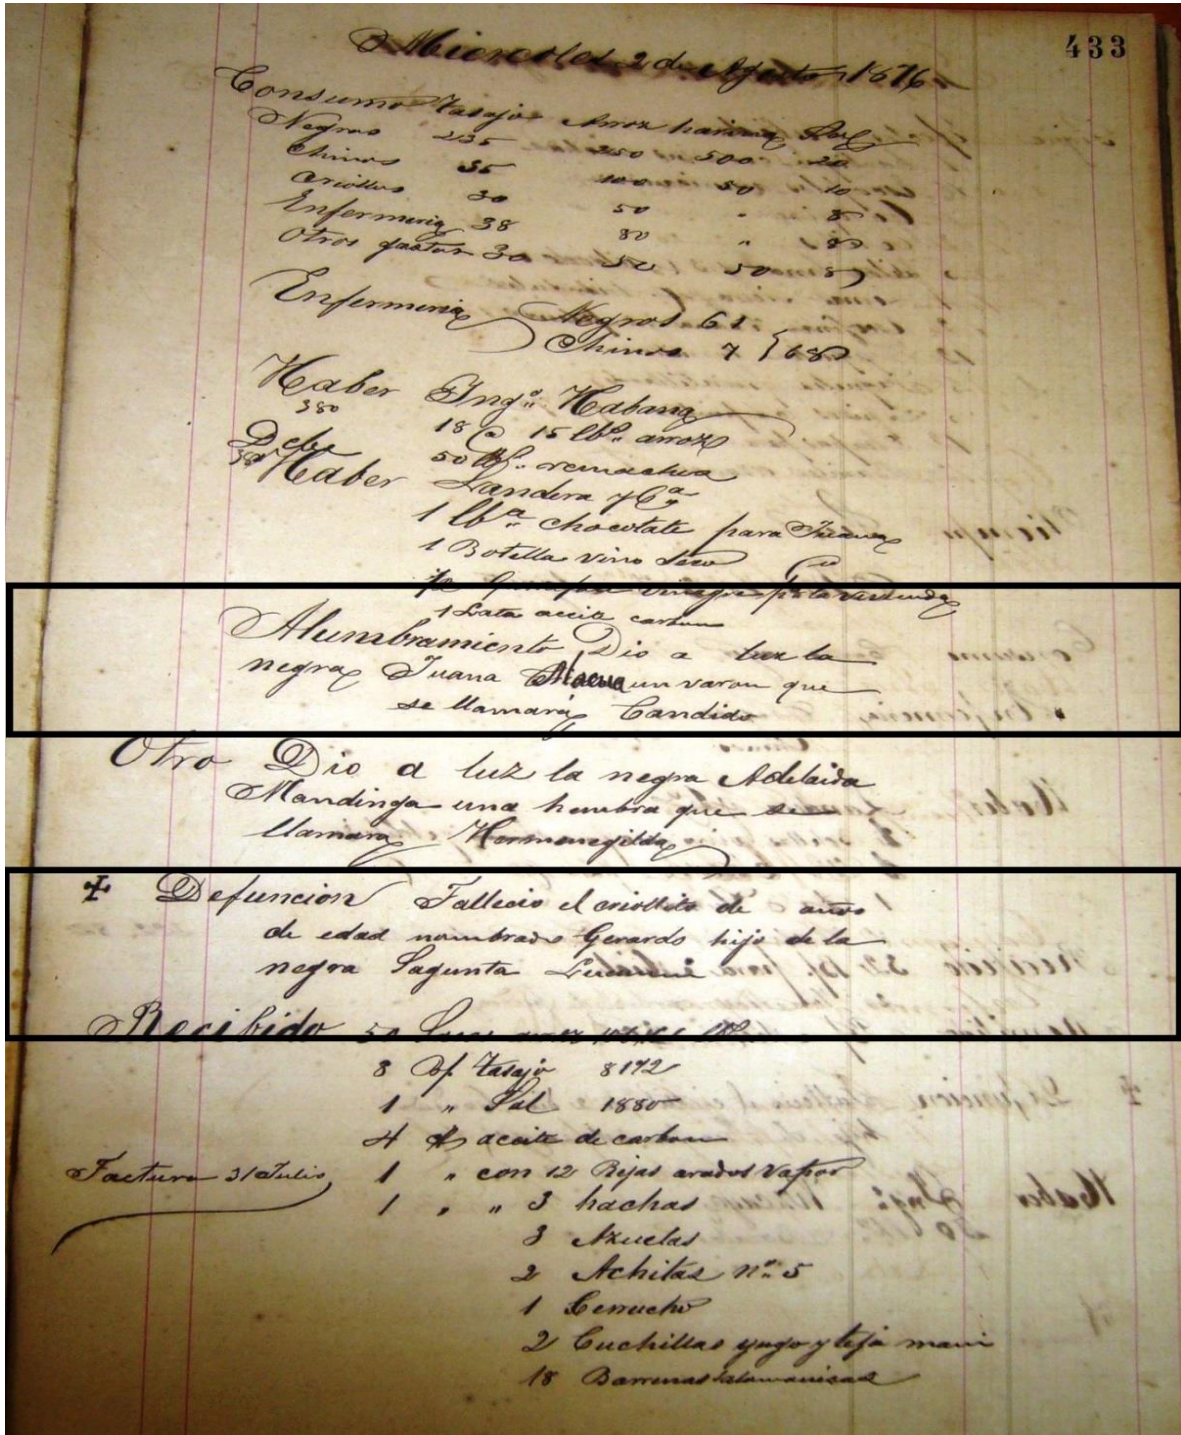 433
Miercoles 2 de Agosto 1876
Consumo Tasajo Arroz harina Sal
Negros 235 250 500 20
Chinos 35 100 50 10
Criollos 30 50 " 8
Enfermeria 38 80 " 8
Otros gastos 30 50 50 8
Enfermeria Negros 61
Chinos 7 } 68
Haber Ingº Habana
380
18 @ 15 lbs. arroz
Debe 50 remaches
Haber Landera y Cª
1 lbª chocolate para Juana
1 Botella vino seco
vinagre
1 Lata aceite carbon
Alumbramiento Dio a luz la
negra Juana un varon que
se llamará Candido
Otro Dio a luz la negra Adelaida
Mandinga una hembra que se
llamara Hermenegilda
✝ Defuncion Fallecio el criollito de años
de edad nombrado Gerardo hijo de la
negra Sagunta
Recibido 50 Sacos arroz
8 Bf. Tasajo 8172
1 " Sal 1880
4 aceite de carbon
Factura 31 Julio 1 " con 12 Rejas arados vapor
1 " " 3 hachas
3 Azuelas
2 Achitas nº 5
1 Serrucho
2 Cuchillas yugo y teja mani
18 Barrenas